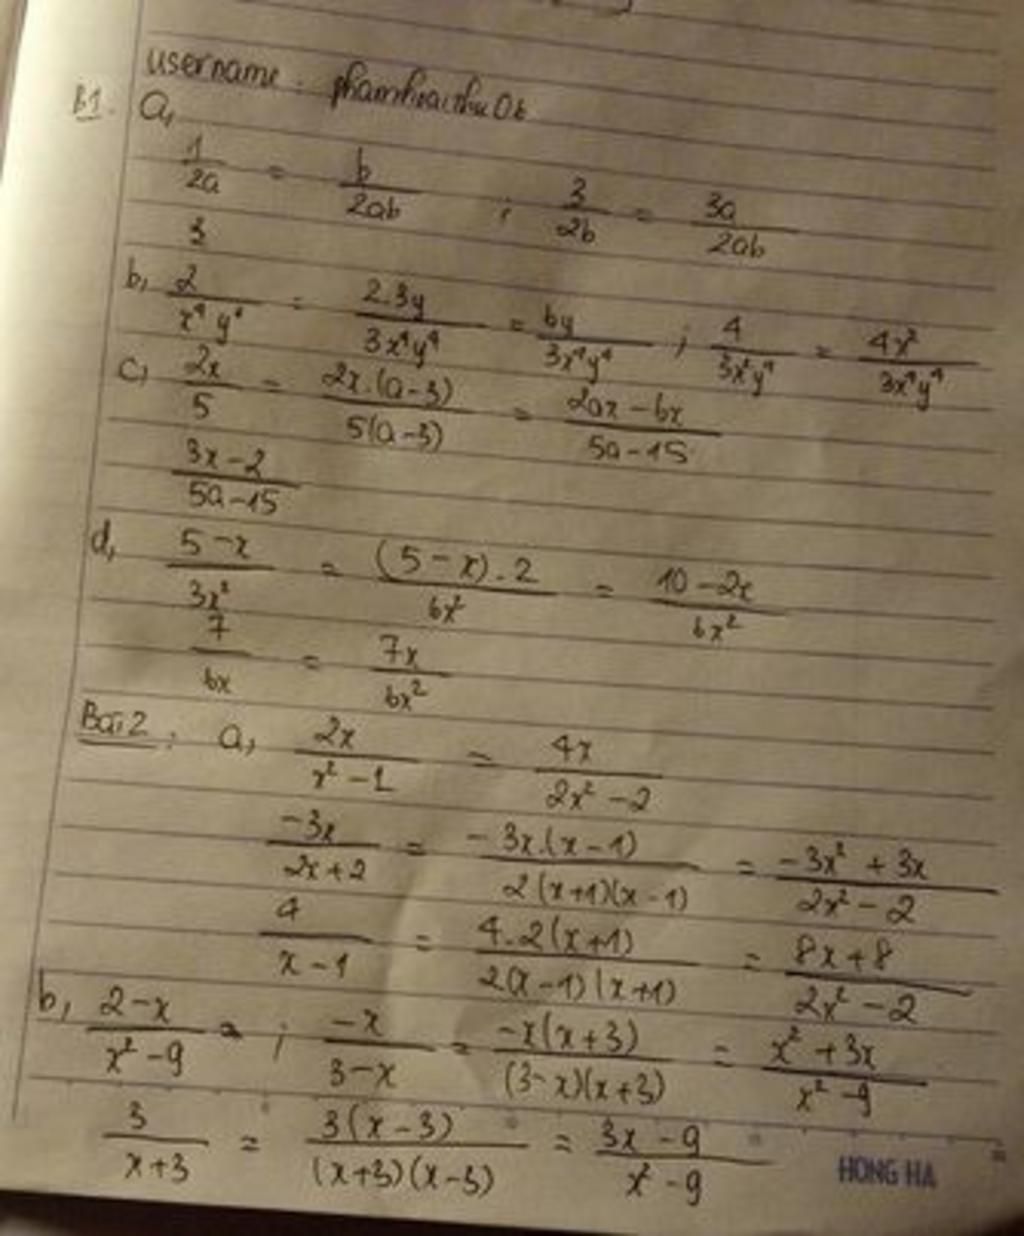 username:
B1. a,
1/2a = b/2ab ; 3/2b = 3a/2ab
3
b, 2/x⁴y³ = 2.3y/3x⁴y⁴ = 6y/3x⁴y⁴ ; 4/3x²y⁴ = 4x²/3x⁴y⁴
c, 2x/5 = 2x.(a-3)/5(a-3) = 2ax-6x/5a-15
3x-2/5a-15
d, 5-x/3x² = (5-x).2/6x² = 10-2x/6x²
7/6x = 7x/6x²
Bài 2: a, 2x/x²-1 = 4x/2x²-2
-3x/2x+2 = -3x.(x-1)/2(x+1)(x-1) = -3x²+3x/2x²-2
4/x-1 = 4.2(x+1)/2(x-1)(x+1) = 8x+8/2x²-2
b, 2-x/x²-9 = ; -x/3-x = -x(x+3)/(3-x)(x+3) = x²+3x/x²-9
3/x+3 = 3(x-3)/(x+3)(x-3) = 3x-9/x²-9
HONG HA